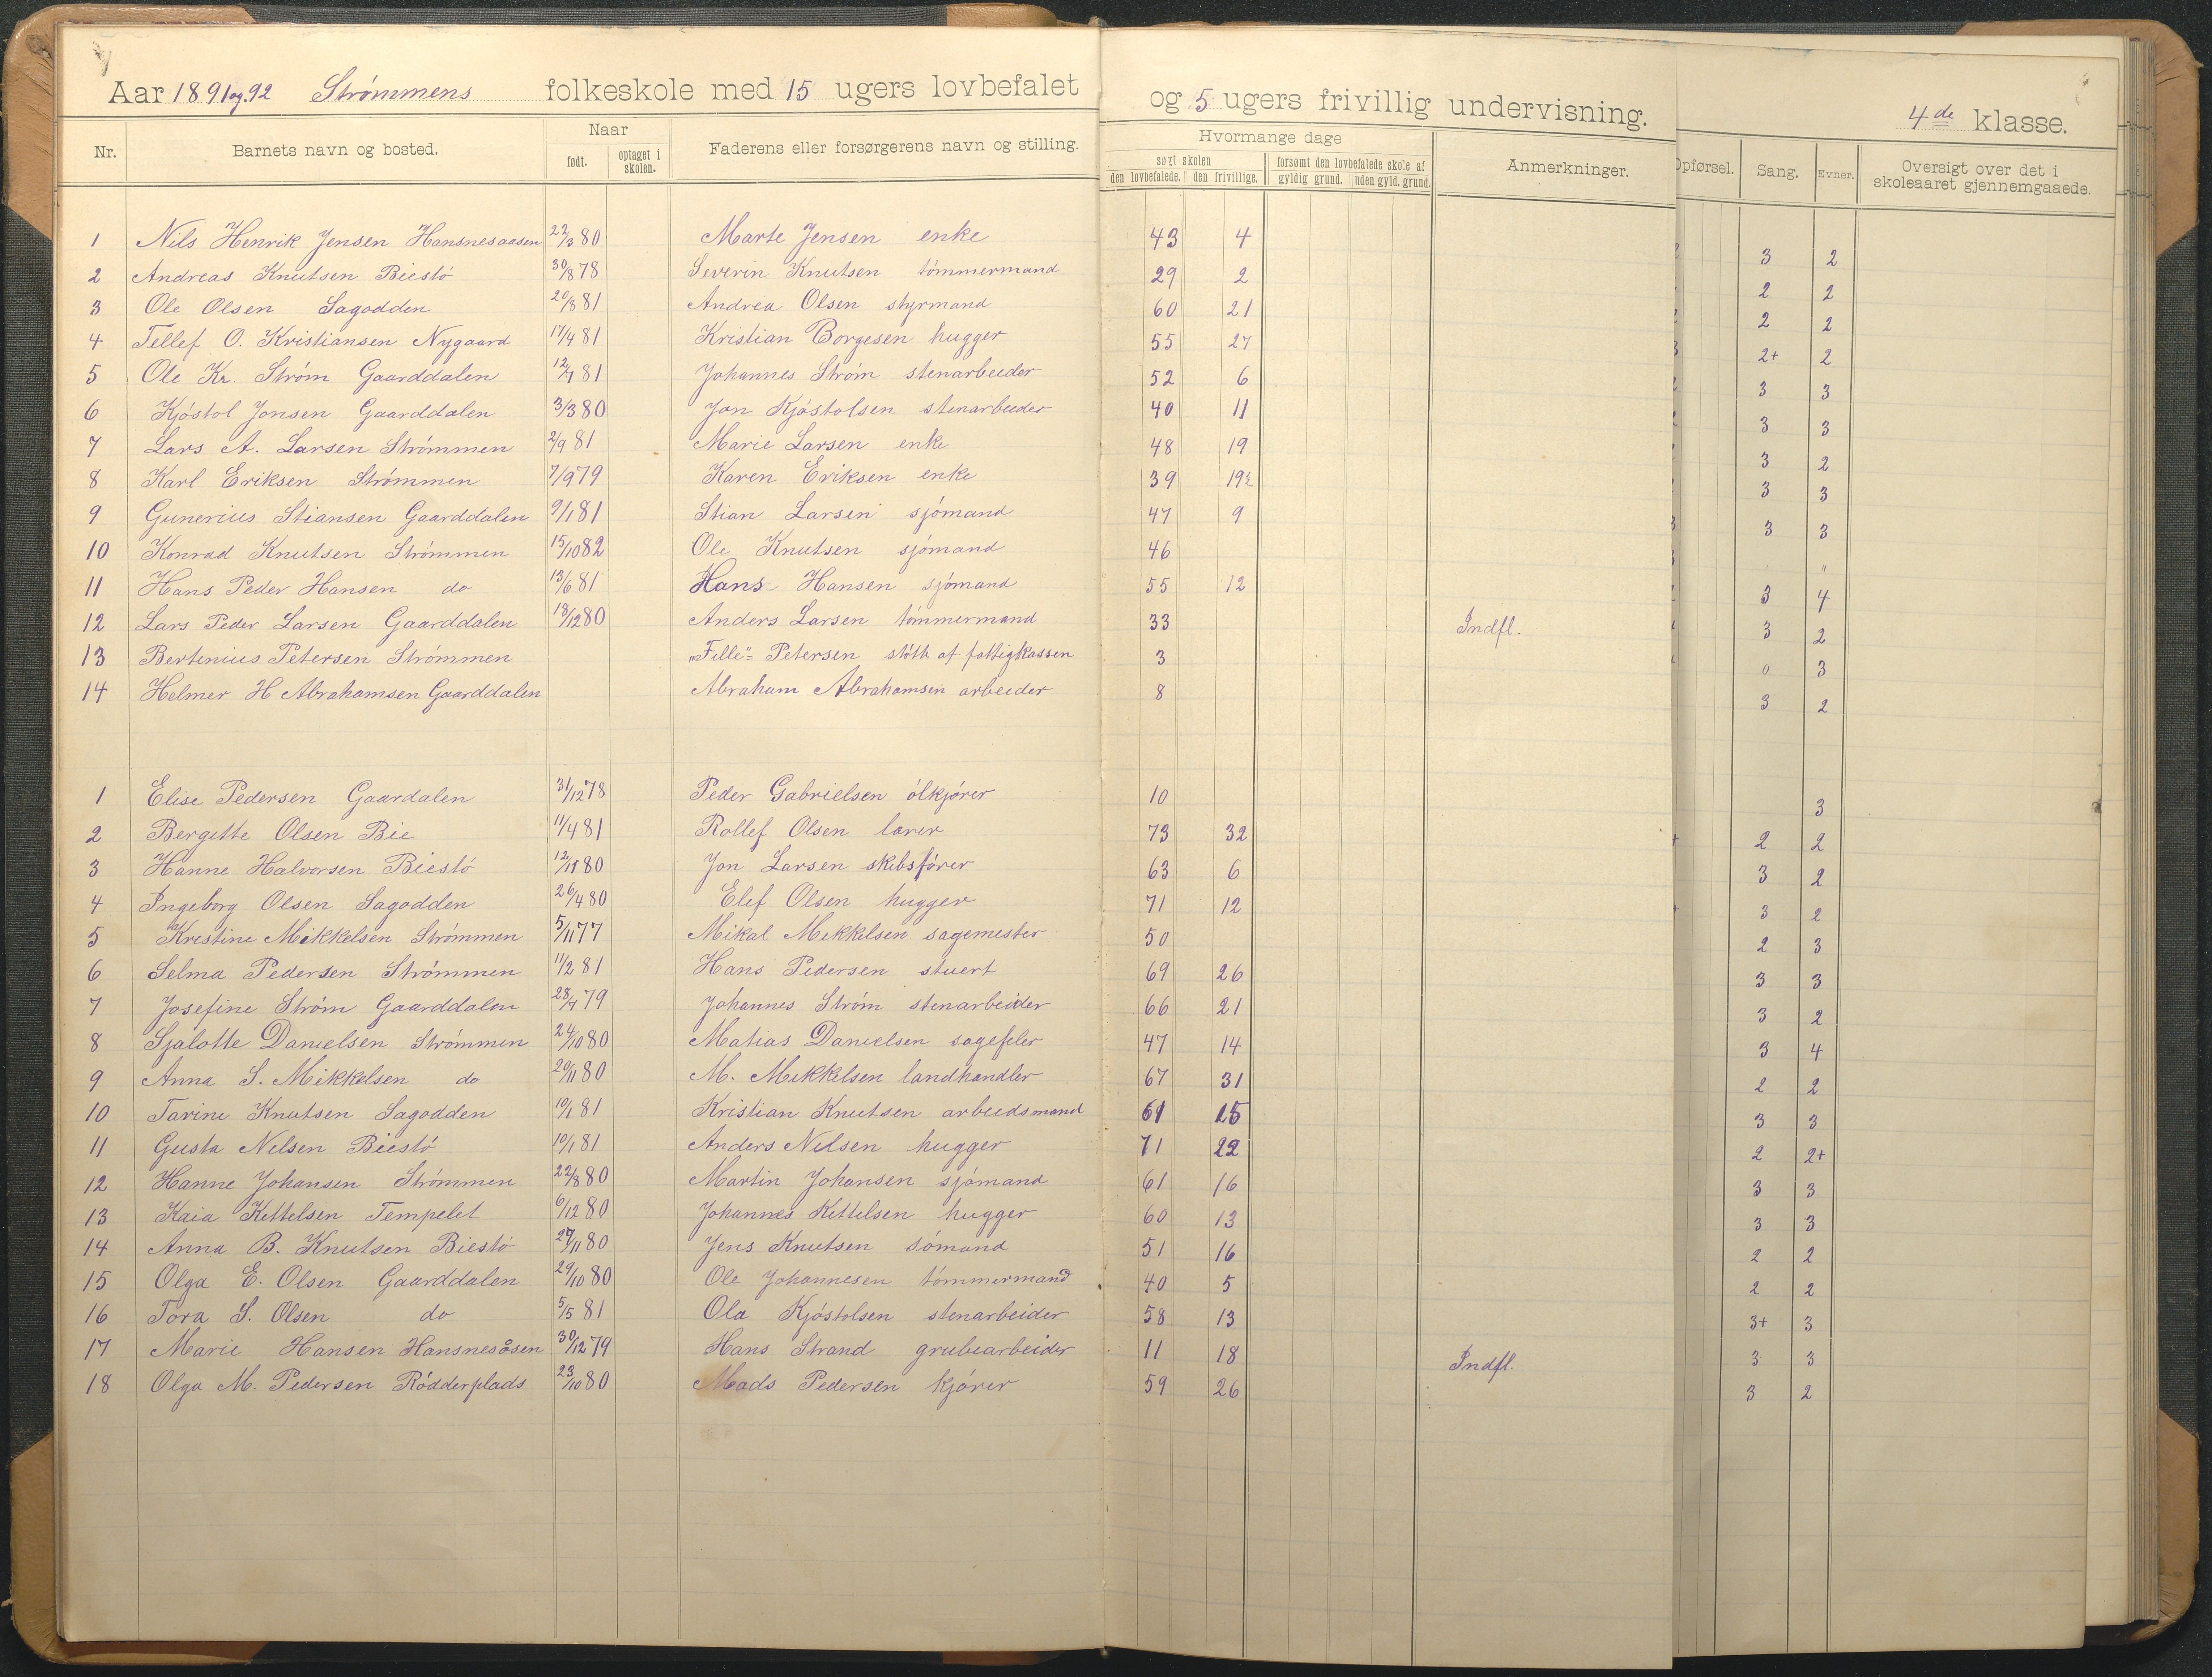 Aar 1891og92 Strømmens folkeskole med 15 ugers lovbefalet og 5 ugers frivillig undervisning. 4de klasse.
Nr. Barnets navn og bosted. Naar født. optaget i skolen. Faderens eller forsørgerens navn og stilling. Hvormange dage søgt skolen den lovbefalede. den frivillige. forsømt den lovbefalede skole af gyldig grund. uden gyld. grund. Anmerkninger. Opførsel. Sang. Evner. Oversigt over det i skoleaaret gjennemgaaede.
1 Nils Henrik Jensen Hansnesaasen 22/3 80 Marte Jensen enke 43 4 3 2
2 Andreas Knutsen Biestö 30/8 78 Severin Knutsen tömmermand 29 2 2 2
3 Ole Olsen Sagodden 20/8 81 Andrea Olsen styrmand 60 21 2 2
4 Tellef O. Kristiansen Nygaard 17/4 81 Kristian Borgesen hugger 55 27 2+ 2
5 Ole Kr. Ström Gaarddalen 81 Johannes Ström stenarbeider 52 6 3 3
6 Kjöstol Jonsen Gaarddalen 3/3 80 Jon Kjöstolsen stenarbeider 40 11 3 3
7 Lars A. Larsen Strömmen 2/9 81 Marie Larsen enke 48 19 3 2
8 Karl Eriksen Strömmen 7/9 79 Karen Eriksen enke 39 19½ 3 3
9 Gunerius Stiansen Gaarddalen 9/1 81 Stian Larsen sjömand 47 9 3 3
10 Konrad Knutsen Strömmen 15/10 82 Ole Knutsen sjömand 46 "
11 Hans Peder Hansen do 13/6 81 Hans Hansen sjömand 55 12 3 4
12 Lars Peder Larsen Gaarddalen 18/12 80 Anders Larsen tömmermand 33 Indfl. 3 2
13 Bertinius Petersen Strömmen „Fille"= Petersen stöth af fattigkassen 3 " 3
14 Helmer H Abrahamsen Gaarddalen Abraham Abrahamsen arbeider 8 3 2
1 Elise Pedersen Gaardalen 31/12 78 Peder Gabrielsen ölkjörer 10 3
2 Bergitte Olsen Bie 11/4 81 Rollef Olsen lærer 73 32 2 2
3 Hanne Halvorsen Biestö 12/11 80 Jon Larsen skibsförer 63 6 3 2
4 Ingeborg Olsen Sagodden 26/4 80 Elef Olsen hugger 71 12 3 2
5 Kristine Mikkelsen Strömmen 5/11 77 Mikal Mikkelsen sagemester 50 2 3
6 Selma Pedersen Strömmen 11/2 81 Hans Pedersen stuert 69 26 3 3
7 Josefine Ström Gaarddalen 79 Johannes Ström stenarbeider 66 21 3 2
8 Sjalotte Danielsen Strömmen 24/10 80 Matias Danielsen sagefiler 47 14 3 4
9 Anna S. Mikkelsen do 20/11 80 M. Mikkelsen landhandler 67 31 2 2
10 Tarine Knutsen Sagodden 10/1 81 Kristian Knutsen arbeidsmand 61 15 3 3
11 Gusta Nilsen Biestö 10/1 81 Anders Nilsen hugger 71 22 2 2+
12 Hanne Johansen Strömmen 22/8 80 Martin Johansen sjömand 61 16 3 3
13 Kaia Kettelsen Tempelet 6/12 80 Johannes Kettelsen hugger 60 13 3 3
14 Anna B. Knutsen Biestö 80 Jens Knutsen sömand 51 16 2 2
15 Olga E. Olsen Gaarddalen 29/10 80 Ole Johannesen tömmermand 40 5 2 2
16 Tora S. Olsen do 5/5 81 Ola Kjöstolsen stenarbeider 58 13 3+ 3
17 Marie Hansen Hansnesåsen 30/12 79 Hans Strand grubearbeider 11 18 Indfl. 3 3
18 Olga M. Pedersen Rödderplads 23/10 80 Mads Pedersen kjörer 59 26 3 2